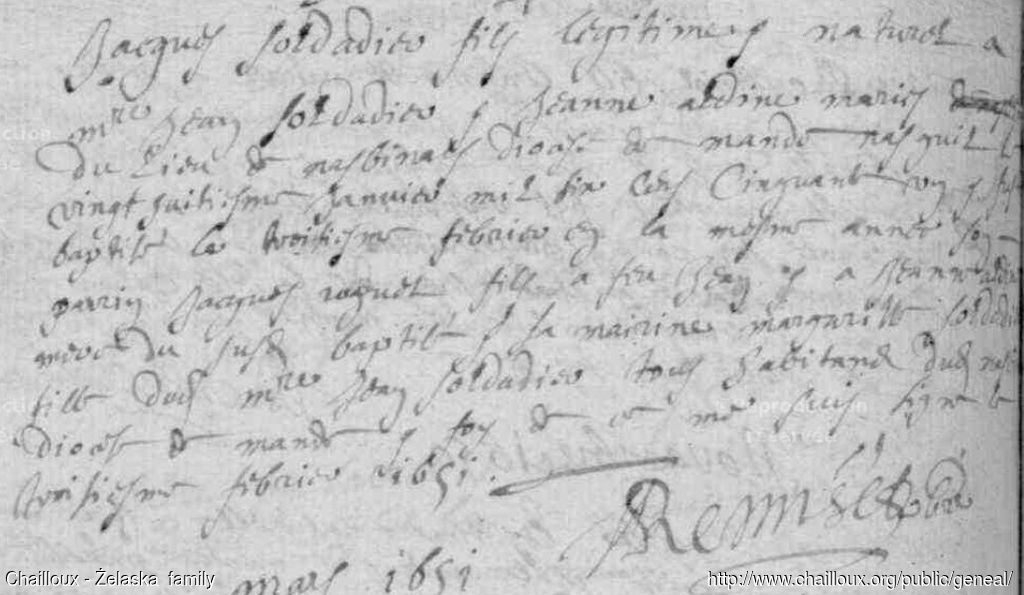 Jacques soldadier fils legitime & naturel a
mre Jean soldadier & Jeanne aldine mariés
du Lieu de nasbinals diocese de mande nasquit le
vingt huitiesme Janvier mil six cens Cinquante un &
baptisé le troisiesme febrier en la mesme année son
parrin Jacques fils a feu Jean & a Jeanne
du susd baptisé & sa mairine margaritte soldadie
fille dud mre Jean soldadier tous habitans dud
diocese de mande & foy de ce me suis signé le
troisiesme febrier 1651.
mars 1651
Chailloux - Żelaska family
http://www.chailloux.org/public/geneal/